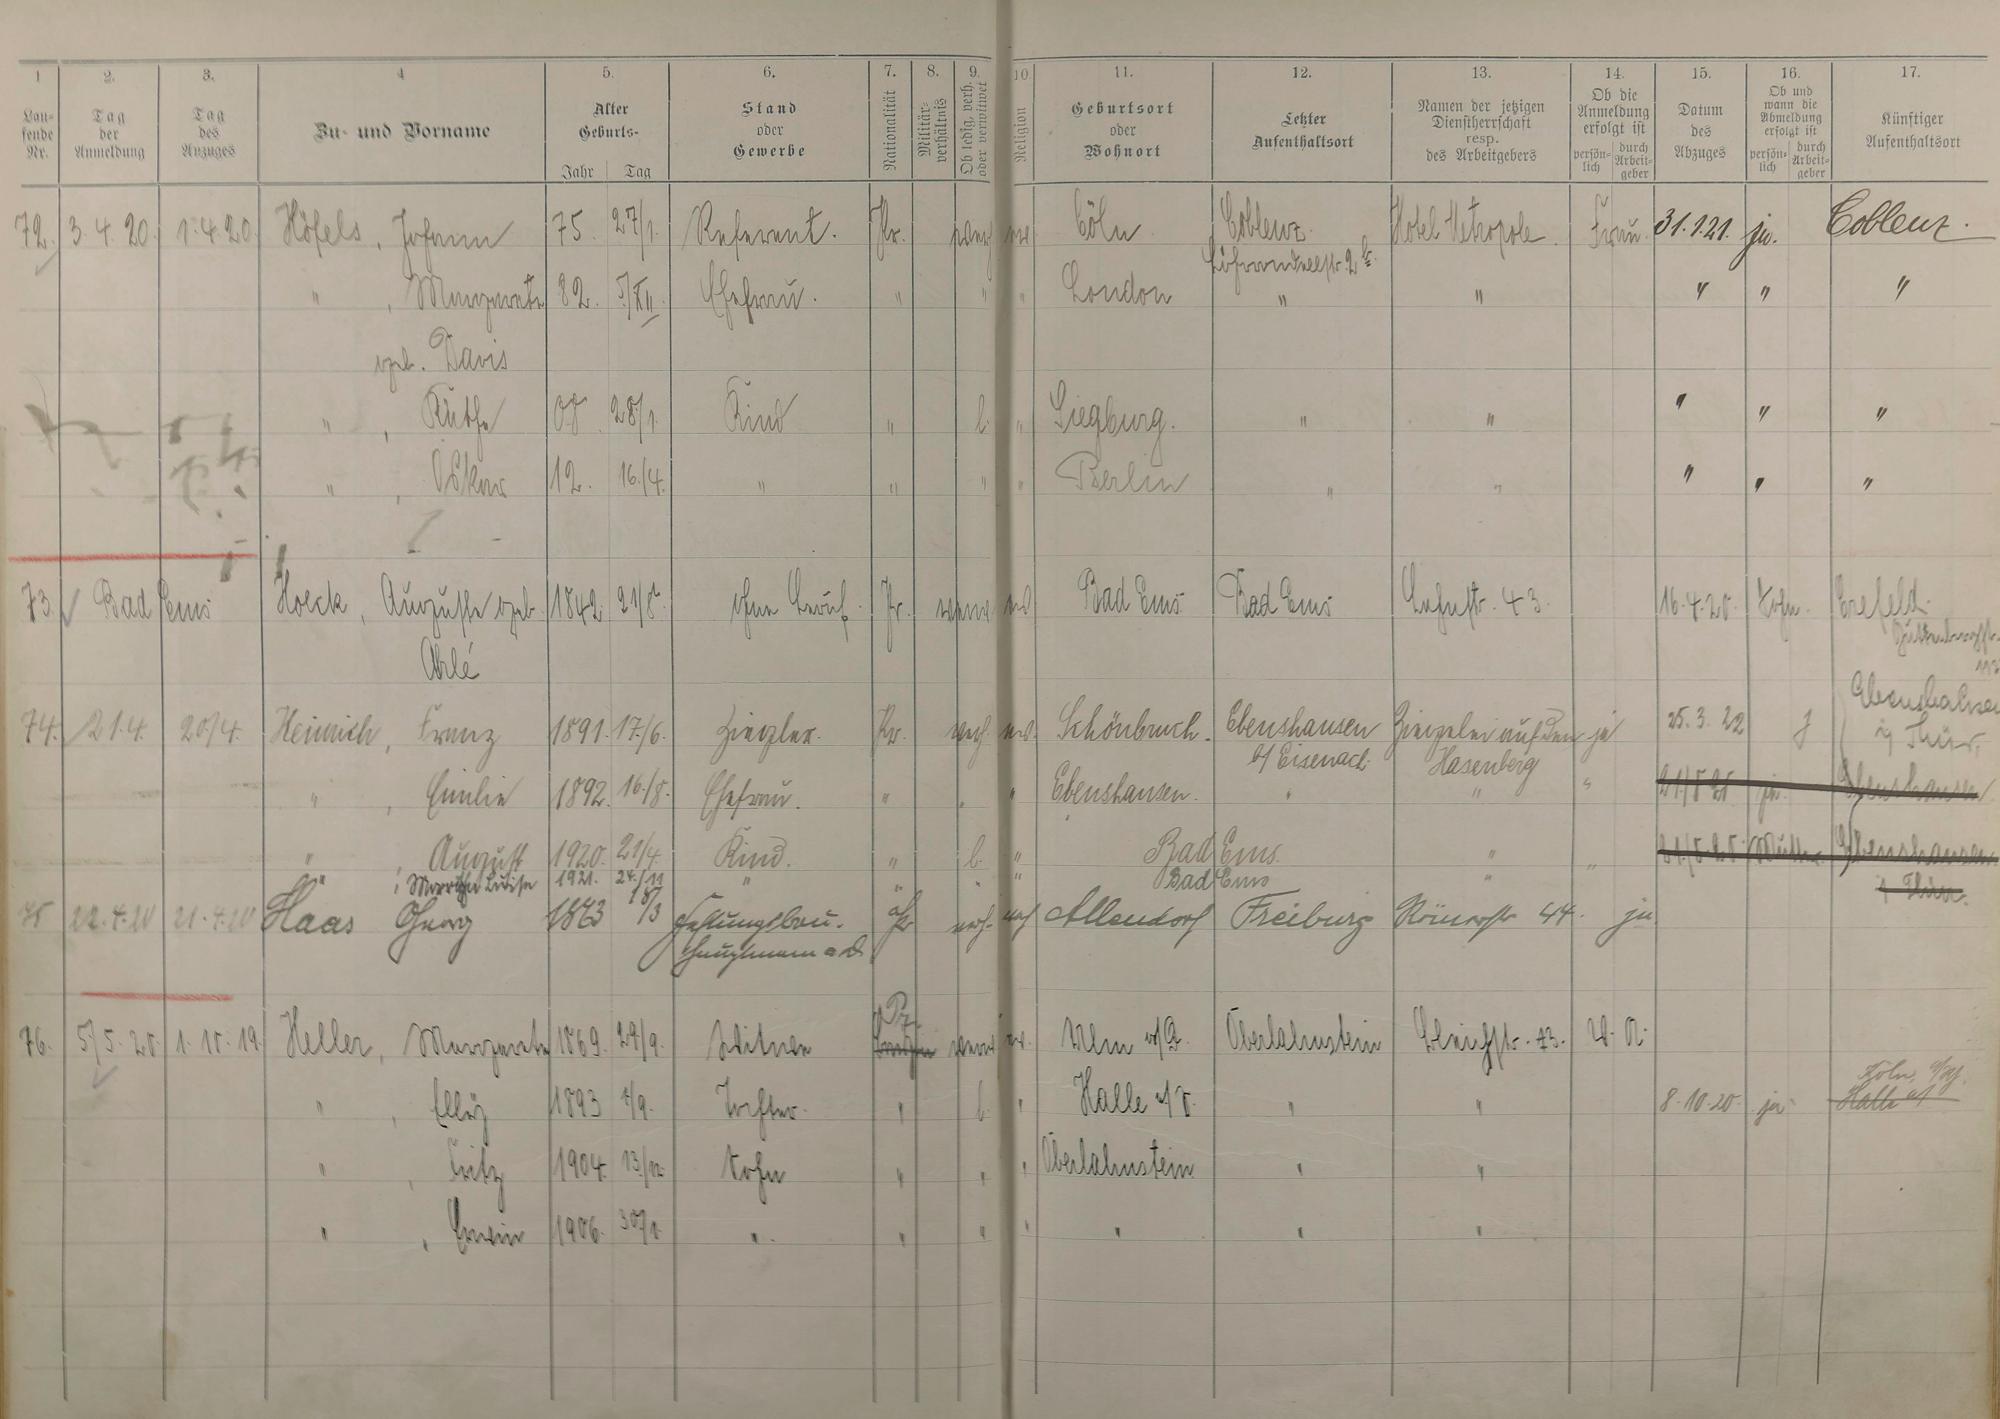 1 2. 3. 4 5. 6. 7. 8. 9. 10 11. 12. 13. 14. 15. 16. 17.
Lau-
fende
Nr.
Tag
der
Anmeldung
Tag
des
Anzuges
Zu- und Vorname
Alter
Geburts-
Jahr Tag
Stand
oder
Gewerbe
Nationalität
Militär-
verhältnis
Ob ledig, verh.
oder verwitwet
Religion
Geburtsort
oder
Wohnort
Letzter
Aufenthaltsort
Namen der jetzigen
Dienstherrschaft
resp.
des Arbeitgebers
Ob die
Anmeldung
erfolgt ist
persön-
lich
durch
Arbeit-
geber
Datum
des
Abzuges
Ob und
wann die
Abmeldung
erfolgt ist
persön-
lich
durch
Arbeit-
geber
Künftiger
Aufenthaltsort
72. 3. 4. 20. 1. 4. 20. Höfels, Johann 75. 27/1. Referent. Pr. verh. ev. Cöln Coblenz. Hotel Metropole. Frau. 31.1.21. ja. Coblenz.
" , Margarete 82. 5/XII Ehefrau. " " " London " " " " "
geb. Davis
" , Käthe 08. 28/1. Kind " l. " Siegburg. " " " " "
" , Oskar 12. 16./4. " " " " Berlin " " " " "
73. Bad Ems Hoeck, Auguste geb. 1842 21/8. ohne Beruf. Pr. verw. ev. Bad Ems Bad Ems Lahnstr. 43. 16.4.20. Sohn. Crefeld.
Ahlé
74. 21.4. 20/4. Heinrich, Franz 1891. 17./6. Ziegler. Pr. verh. ev. Schönbruch. Ebenshausen Ziegelei auf dem ja 25.3.22 Ebenshausen
b/ Eisenach. Hasenberg i/ Thür.
" , Emilie 1892. 16./8. Ehefrau. " " " Ebenshausen. " " " 21/8 20 ja. Ebenshausen
" , August 1920. 21/4. Kind. " l. " Bad Ems. " " 21/8.20 Mutter Ebenshausen
" , Martha Luise 1921. 24./11 " " " " Bad Ems " i. Thür.
75 22.4.20 21.4.20 Haas Georg 1873 18/3 Festungsbau- Pr verh. Allendorf Freiburg Römerstr 44. ja.
hauptmann a.D.
76. 5/5. 20. 1. 10. 19. Heller, Margarete 1869. 24/9. Witwe Pr. verw. ev. Ulm a/D. Oberlahnstein Bleichstr. 43.
" , Elly 1893 Tochter. " l. " Halle a/S. " " 8.10.20. ja Halle a/
" , Fritz 1904. 13./12. Sohn " " " Oberlahnstein " "
" , Erwin 1906. " " " " " " "